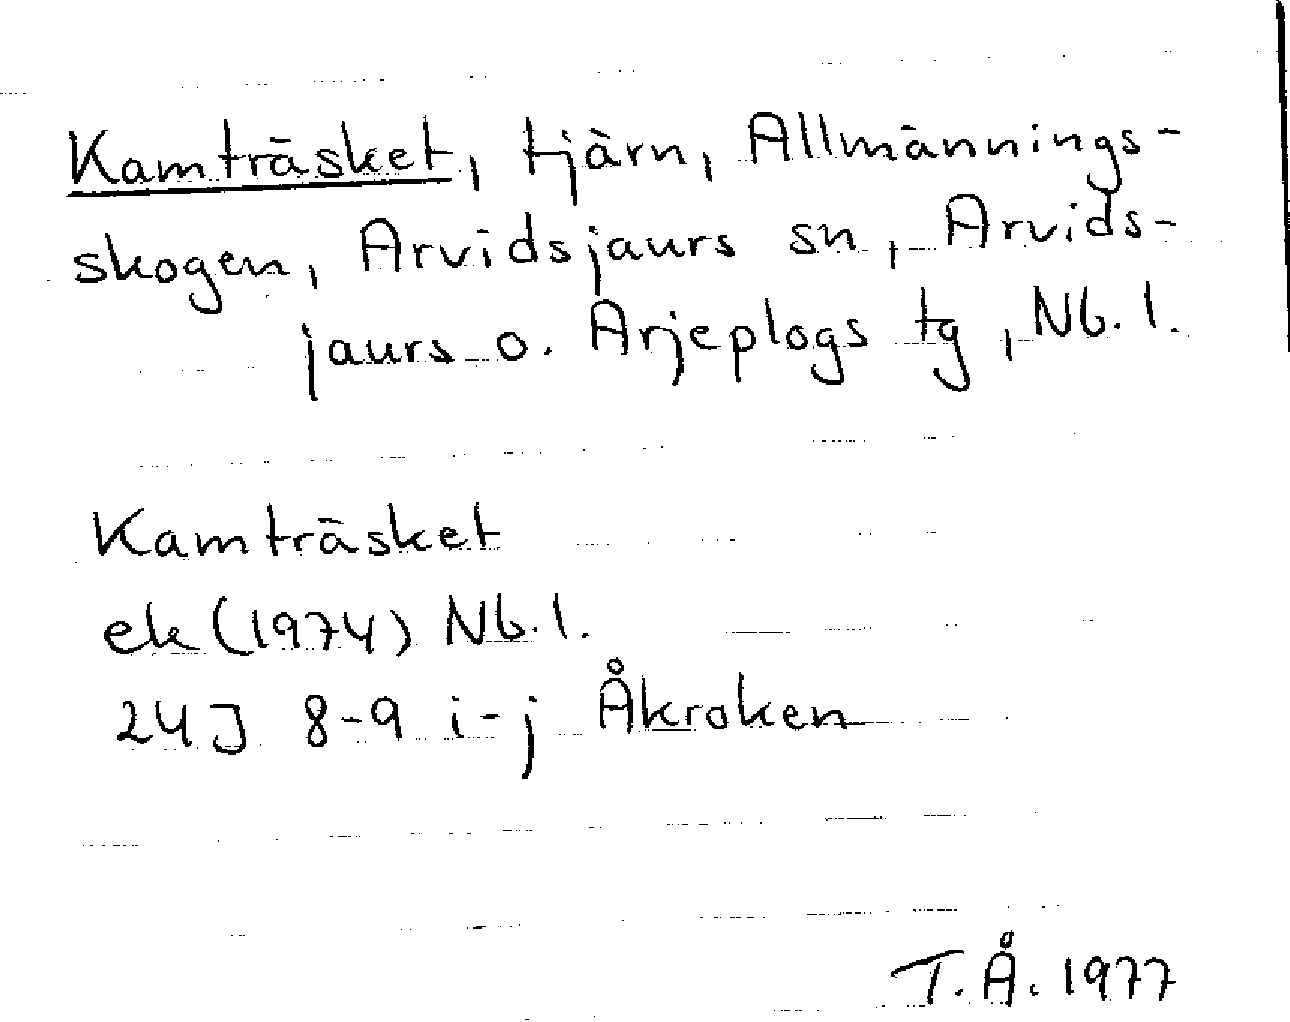 Kamträsket, tjärn, Allmännings-
skogen, Arvidsjaurs sn, Arvids-
jaurs o. Arjeplogs tg, Nb. l.
Kamträsket
ek (1974) Nb. l.
24J 8-9 i-j Åkroken
T.Å. 1977